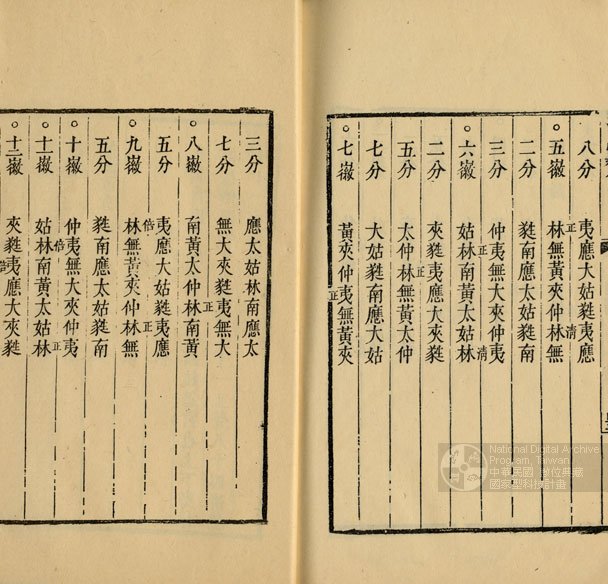 八分 夷正應大姑蕤夷清應
○五徽 林無黃夾仲林無
二分 蕤南應大姑蕤南
三分 仲夷正無大夾仲夷清
○六徽 姑林南黃太姑林
二分 夾蕤夷正應大夾蕤
五分 太仲林無黃太仲
七分 大姑蕤南應大姑
○七徽 黃夾仲夷正無黃夾
三分 應太姑林南應太
七分 無大夾蕤夷正無大
○八徽 南黃太仲林南黃
五分 夷倍應大姑蕤夷正應
○九徽 林無黃夾仲林無
五分 蕤南應太姑蕤南
○十徽 仲夷倍無大夾仲夷正
○十一徽 姑林南黃太姑林
○十二徽 夾蕤夷倍應大夾蕤
National Digital Archive
Program, Taiwan
中華民國 數位典藏
國家型科技計畫